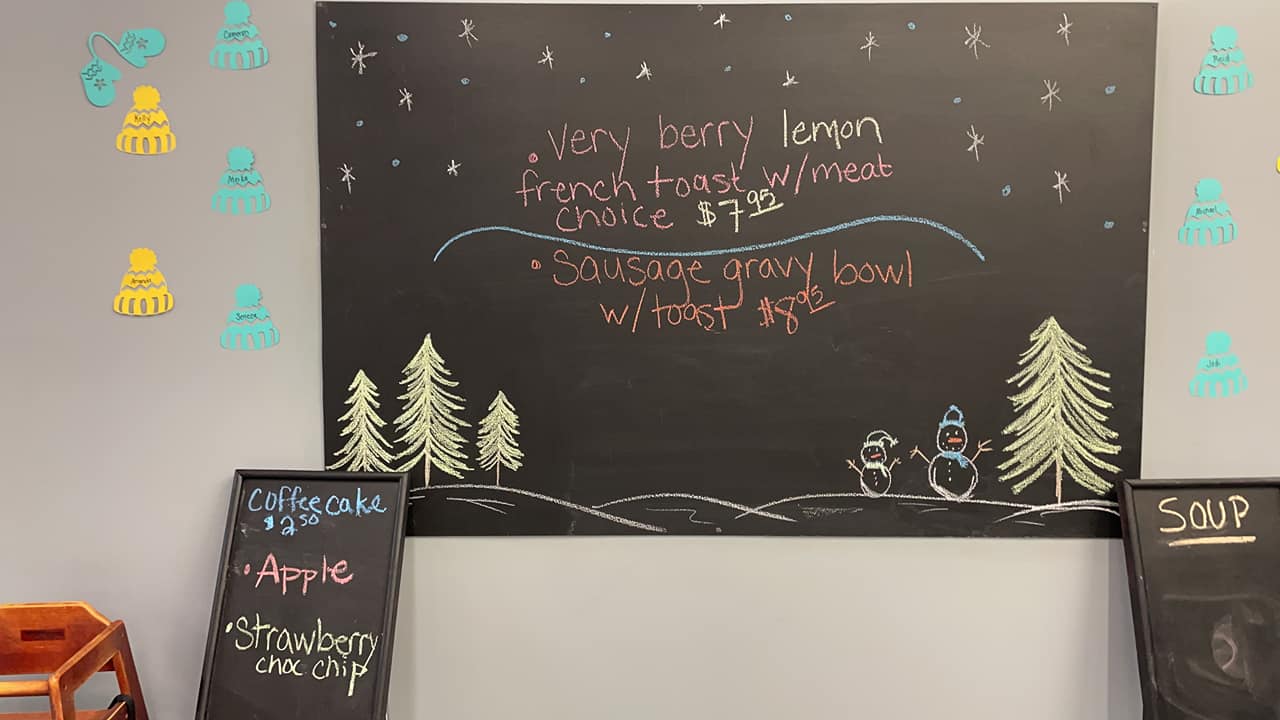 Kelly
• Very berry lemon
french toast w/meat
choice $7.95
• Sausage gravy bowl
w/toast $8.95
Coffee cake
$2.50
• Apple
• Strawberry
choc chip
SOUP
Reid
Michael